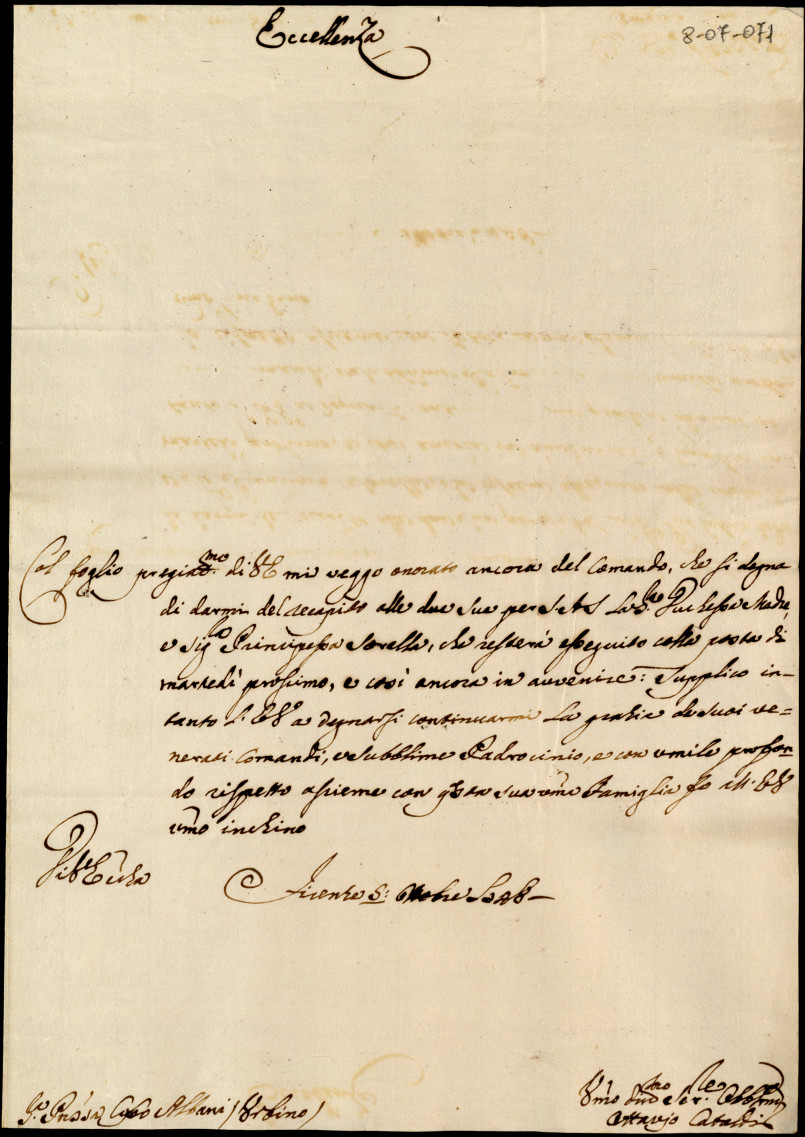 Eccellenza
8-07-071
Col foglio pregiat.mo di V.E. mi veggo onorato ancora del Comando, che si degna
di darmi del recapito alle due sue per S.A.S. La Sig.ra Duchessa Madre,
e Sig.ra Principessa Sorella, che resterà esseguito colla posta di
martedì prossimo, e così ancora in avvenire: Supplico in-
tanto l'E.V. a degnarsi continuarmi la grazia de suoi ve-
nerati Comandi, e Subblime Padrocinio, e con umile profon-
do rispetto assieme con q.ta sua um̃a Famiglia fo all'E.V.
um̃o inchino
Di V.E.
Firenze 8: Ottobre
Cybo Albani (Urbino)
Um̃o Ser.re
Ottavio Cataldi